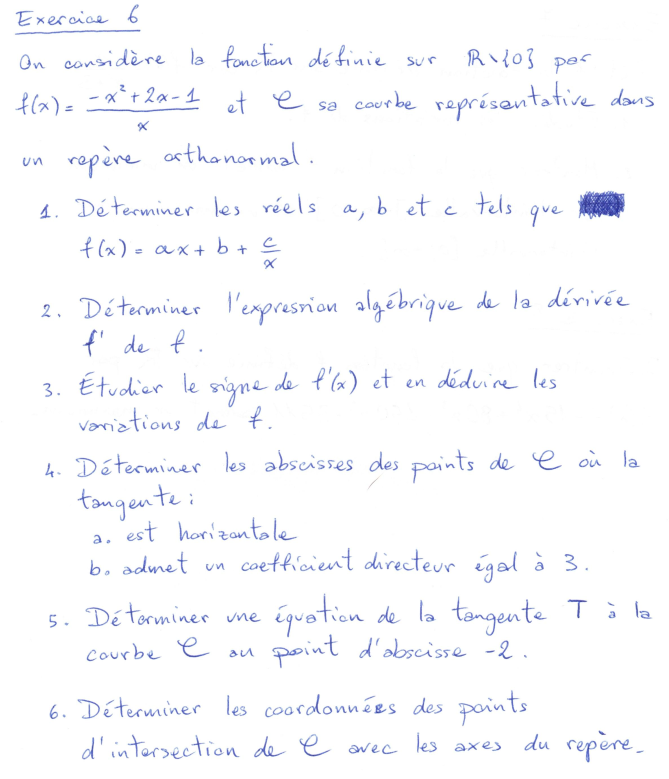 Exercice 6
On considère la fonction définie sur ℝ\{0} par
f(x) = (-x² + 2x - 1)/x et C sa courbe représentative dans
un repère orthonormal.
1. Déterminer les réels a, b et c tels que
f(x) = ax + b + c/x
2. Déterminer l'expression algébrique de la dérivée
f' de f.
3. Étudier le signe de f'(x) et en déduire les
variations de f.
4. Déterminer les abscisses des points de C où la
tangente :
a. est horizontale
b. admet un coefficient directeur égal à 3.
5. Déterminer une équation de la tangente T à la
courbe C au point d'abscisse -2.
6. Déterminer les coordonnées des points
d'intersection de C avec les axes du repère.